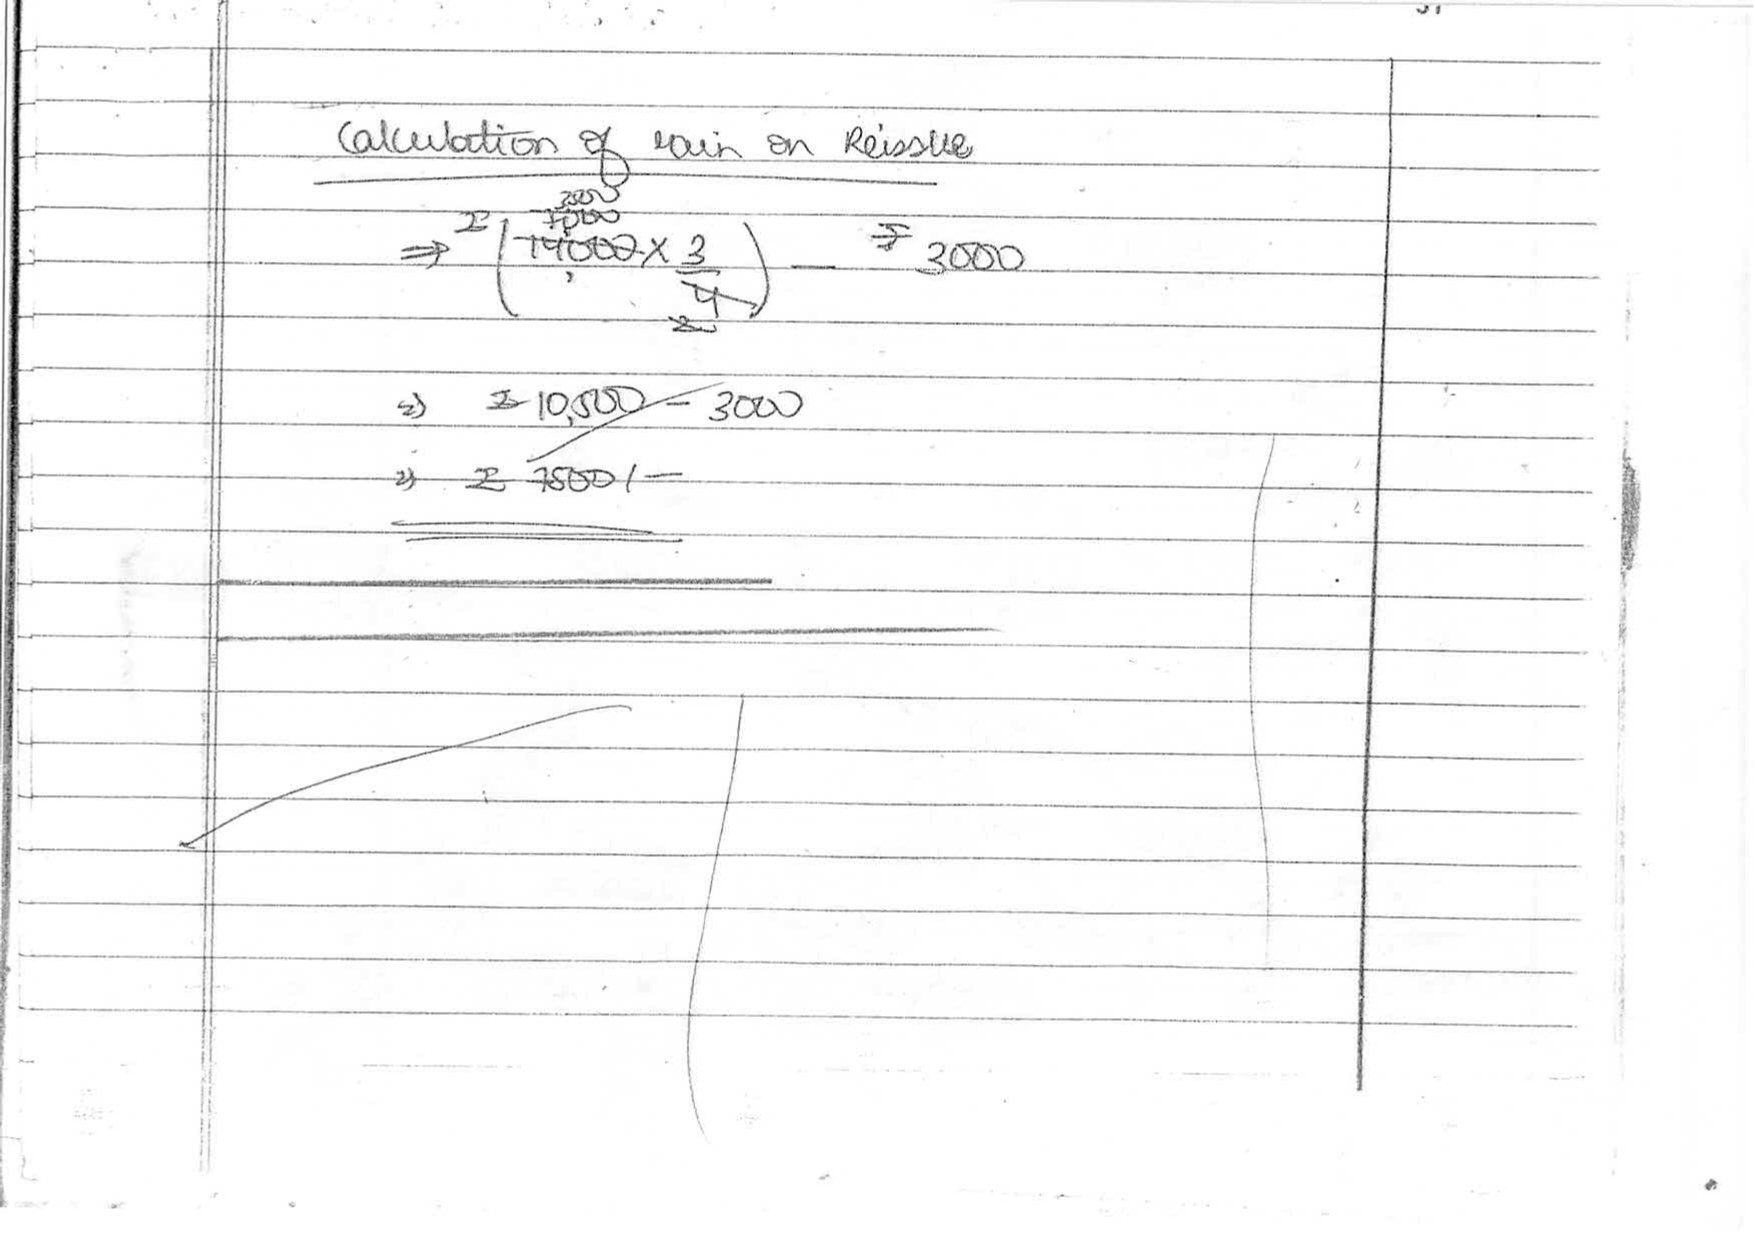 Calculation of Gain on Reissue
3500
7000
⇒ ₹ (14000 × 3/4) — ₹ 3000
2
⇒ ₹ 10,500 - 3000
⇒ ₹ 7500/-